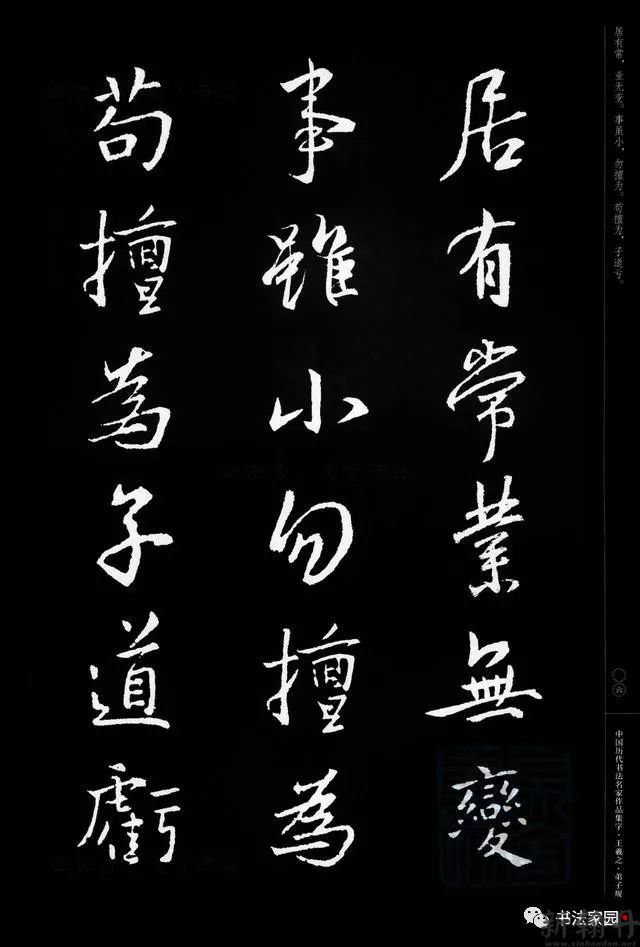 居有常業無變
事雖小勿擅為
苟擅為子道虧
居有常，业无变。事虽小，勿擅为。苟擅为，子道亏。
〇六
中国历代书法名家作品集字·王羲之·弟子规
书法家园
新翰丹
www.xinhandan.com